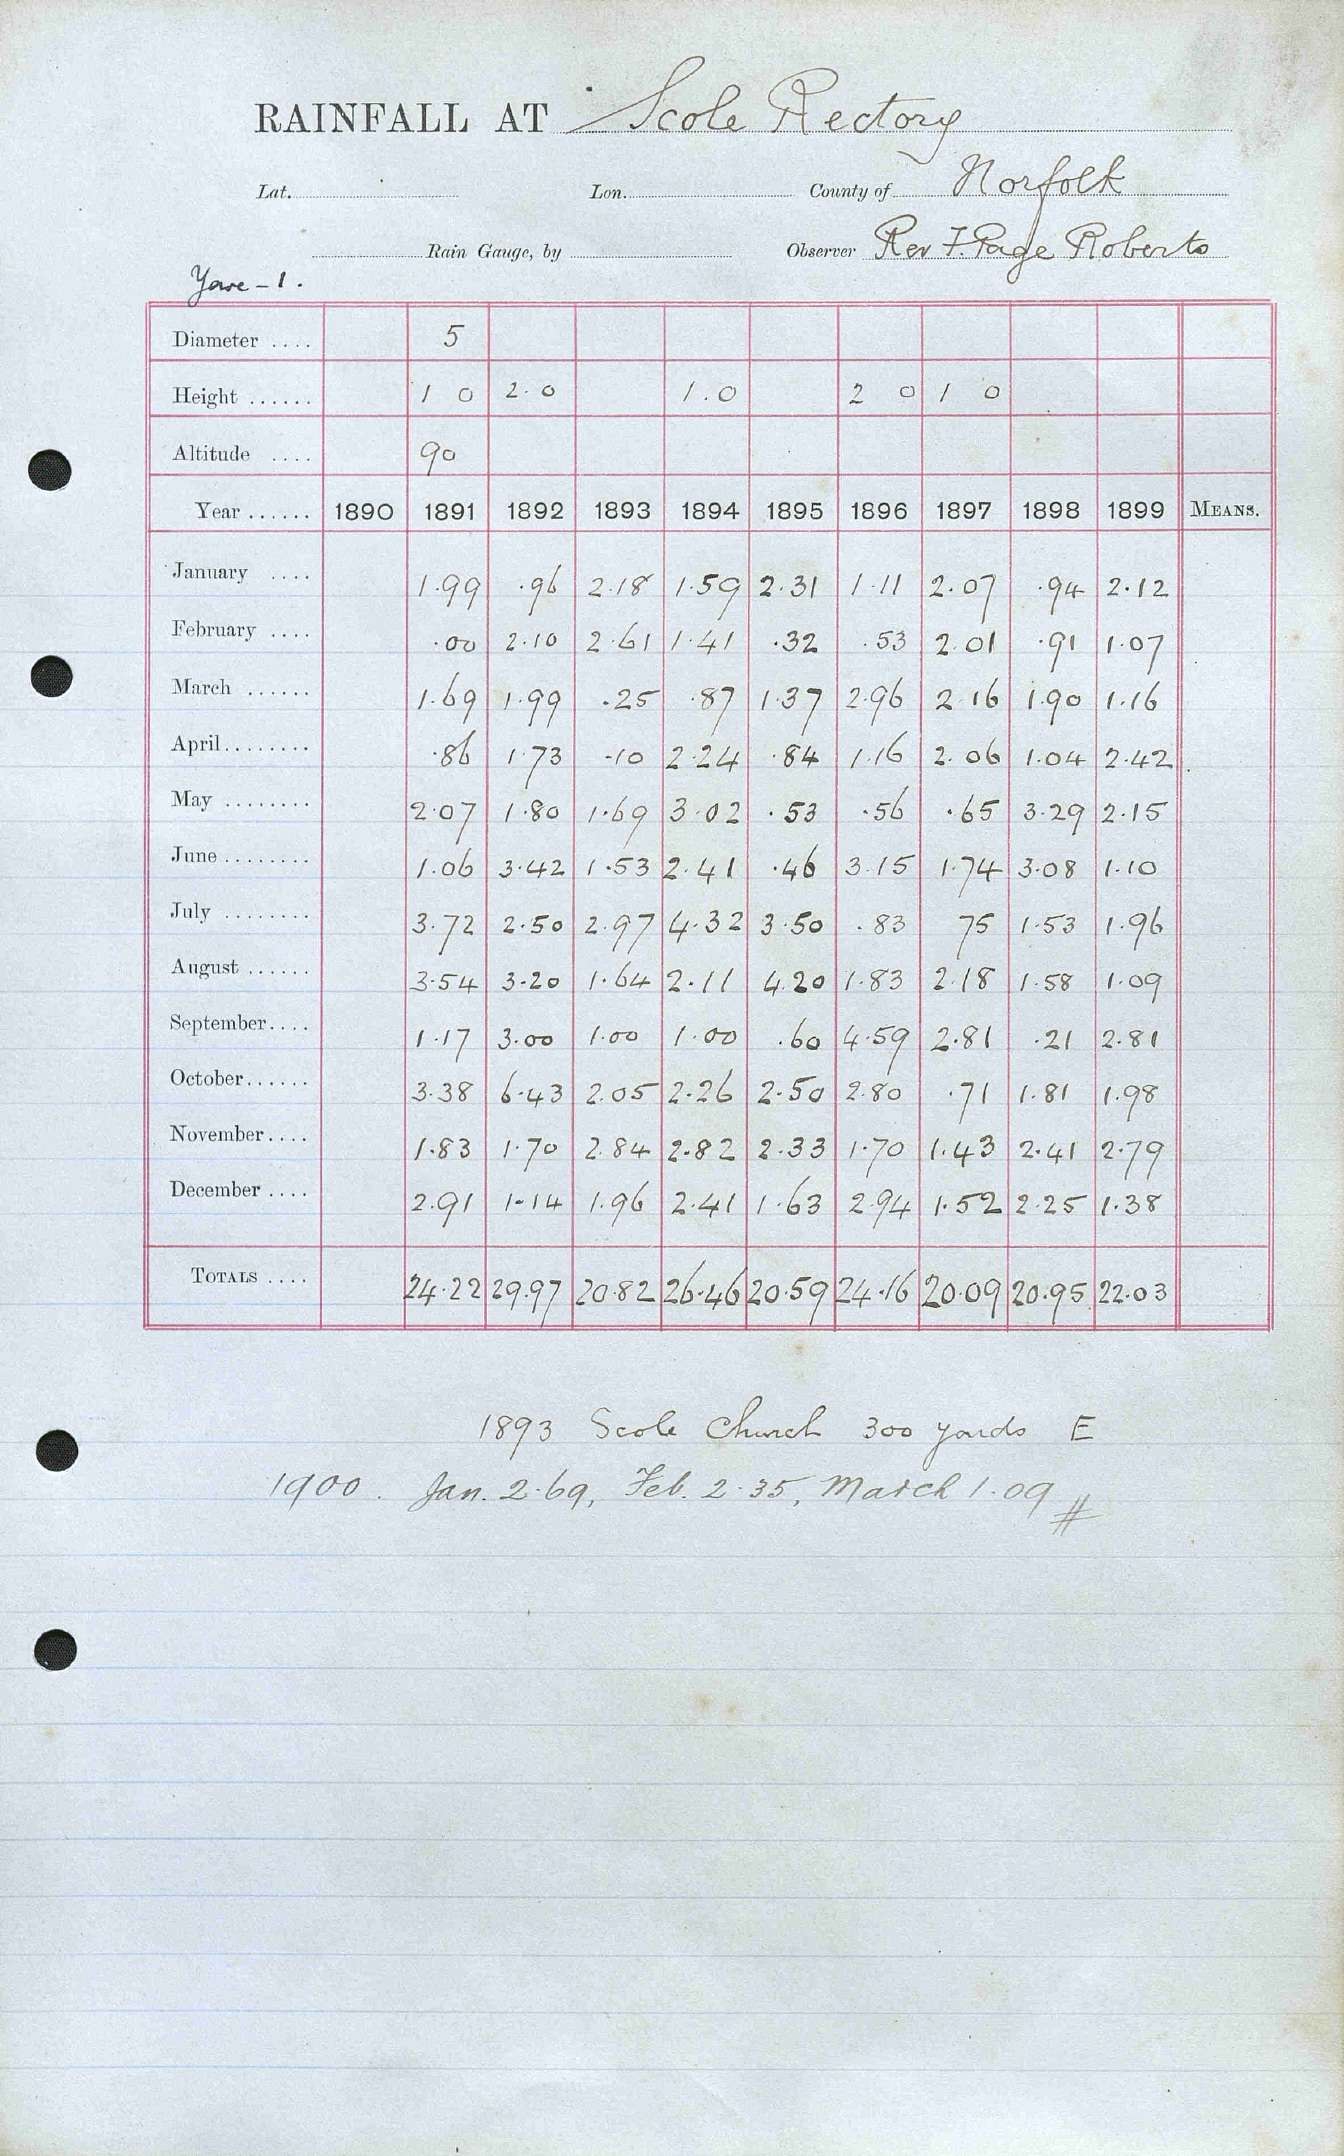 RAINFALL AT Scole Rectory
Lat. Lon. County of Norfolk
Rain Gauge, by Observer Rev F. Page Roberts
Yare - 1.
Diameter .... 5
Height ...... 1 0 2.0 1.0 2 0 1 0
Altitude .... 90
Year ...... 1890 1891 1892 1893 1894 1895 1896 1897 1898 1899 MEANS.
January .... 1.99 .96 2.18 1.59 2.31 1.11 2.07 .94 2.12
February .... .00 2.10 2.61 1.41 .32 .53 2.01 .91 1.07
March ...... 1.69 1.99 .25 .87 1.37 2.96 2.16 1.90 1.16
April ........ .86 1.73 .10 2.24 .84 1.16 2.06 1.04 2.42
May ........ 2.07 1.80 1.69 3.02 .53 .56 .65 3.29 2.15
June ........ 1.06 3.42 1.53 2.41 .46 3.15 1.74 3.08 1.10
July ........ 3.72 2.50 2.97 4.32 3.50 .83 75 1.53 1.96
August ...... 3.54 3.20 1.64 2.11 4.20 1.83 2.18 1.58 1.09
September .... 1.17 3.00 1.00 1.00 .60 4.59 2.81 .21 2.81
October ...... 3.38 6.43 2.05 2.26 2.50 2.80 .71 1.81 1.98
November .... 1.83 1.70 2.84 2.82 2.33 1.70 1.43 2.41 2.79
December .... 2.91 1.14 1.96 2.41 1.63 2.94 1.52 2.25 1.38
TOTALS .... 24.22 29.97 20.82 26.46 20.59 24.16 20.09 20.95 22.03
1893 Scole Church 300 yards E
1900. Jan. 2.69, Feb. 2.35, March 1.09 #